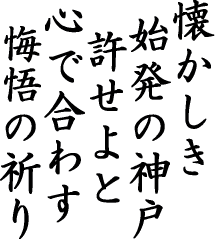 懐かしき
始発の神戸
許せよと
心で合わす
悔悟の祈り